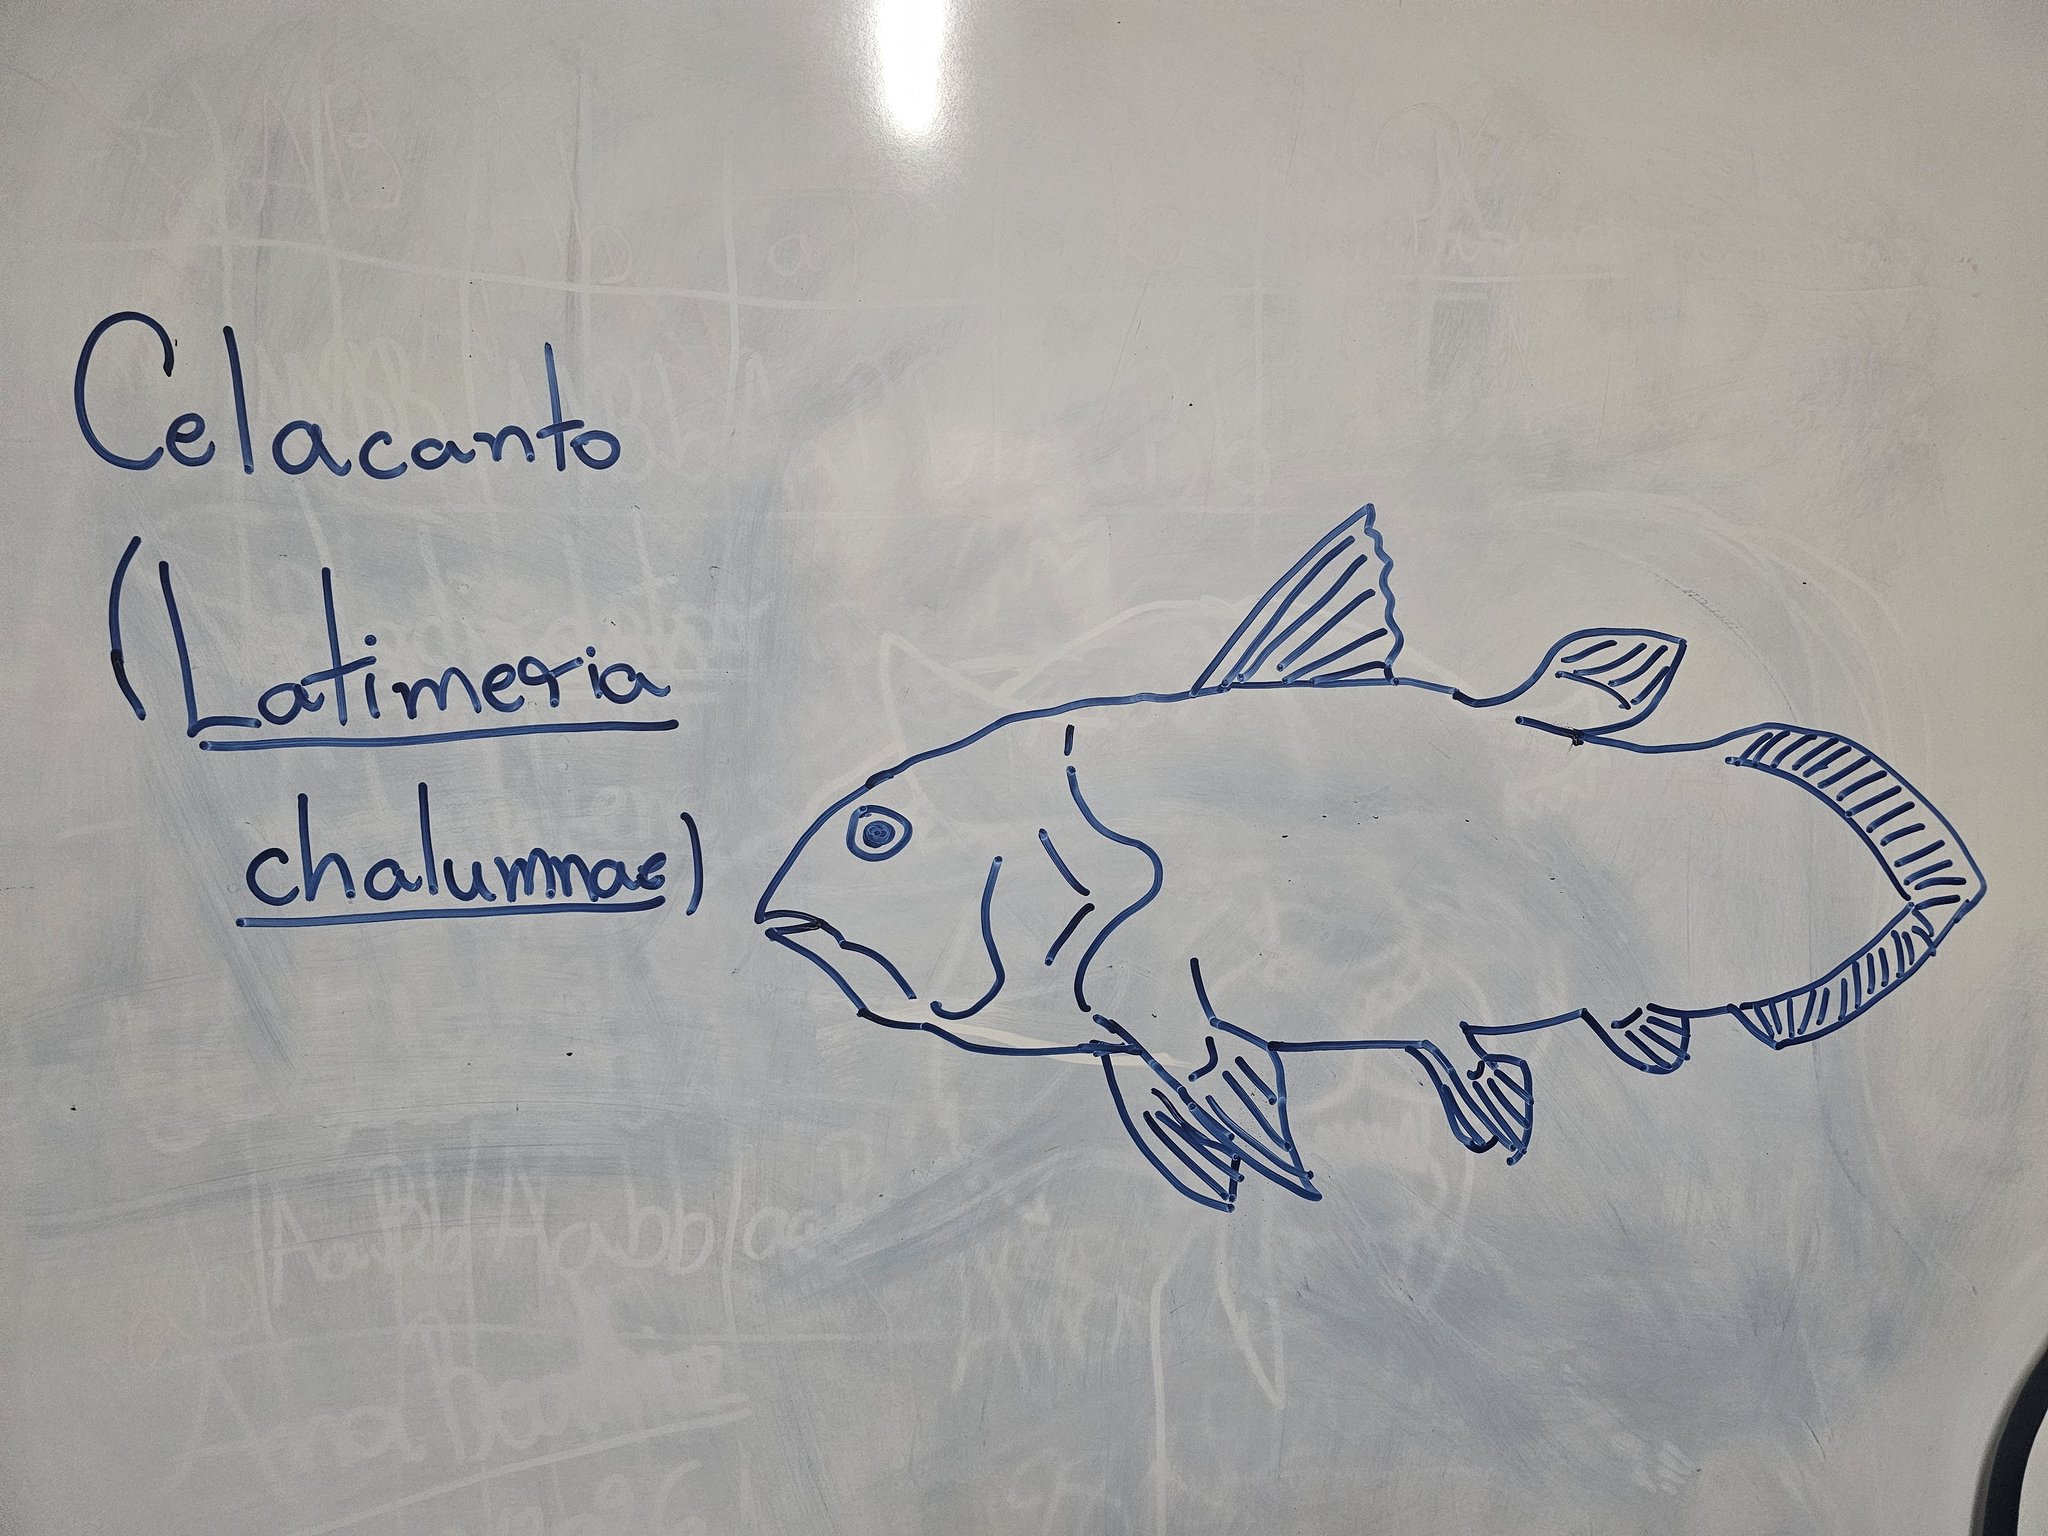 Celacanto
(Latimeria
chalumnae)